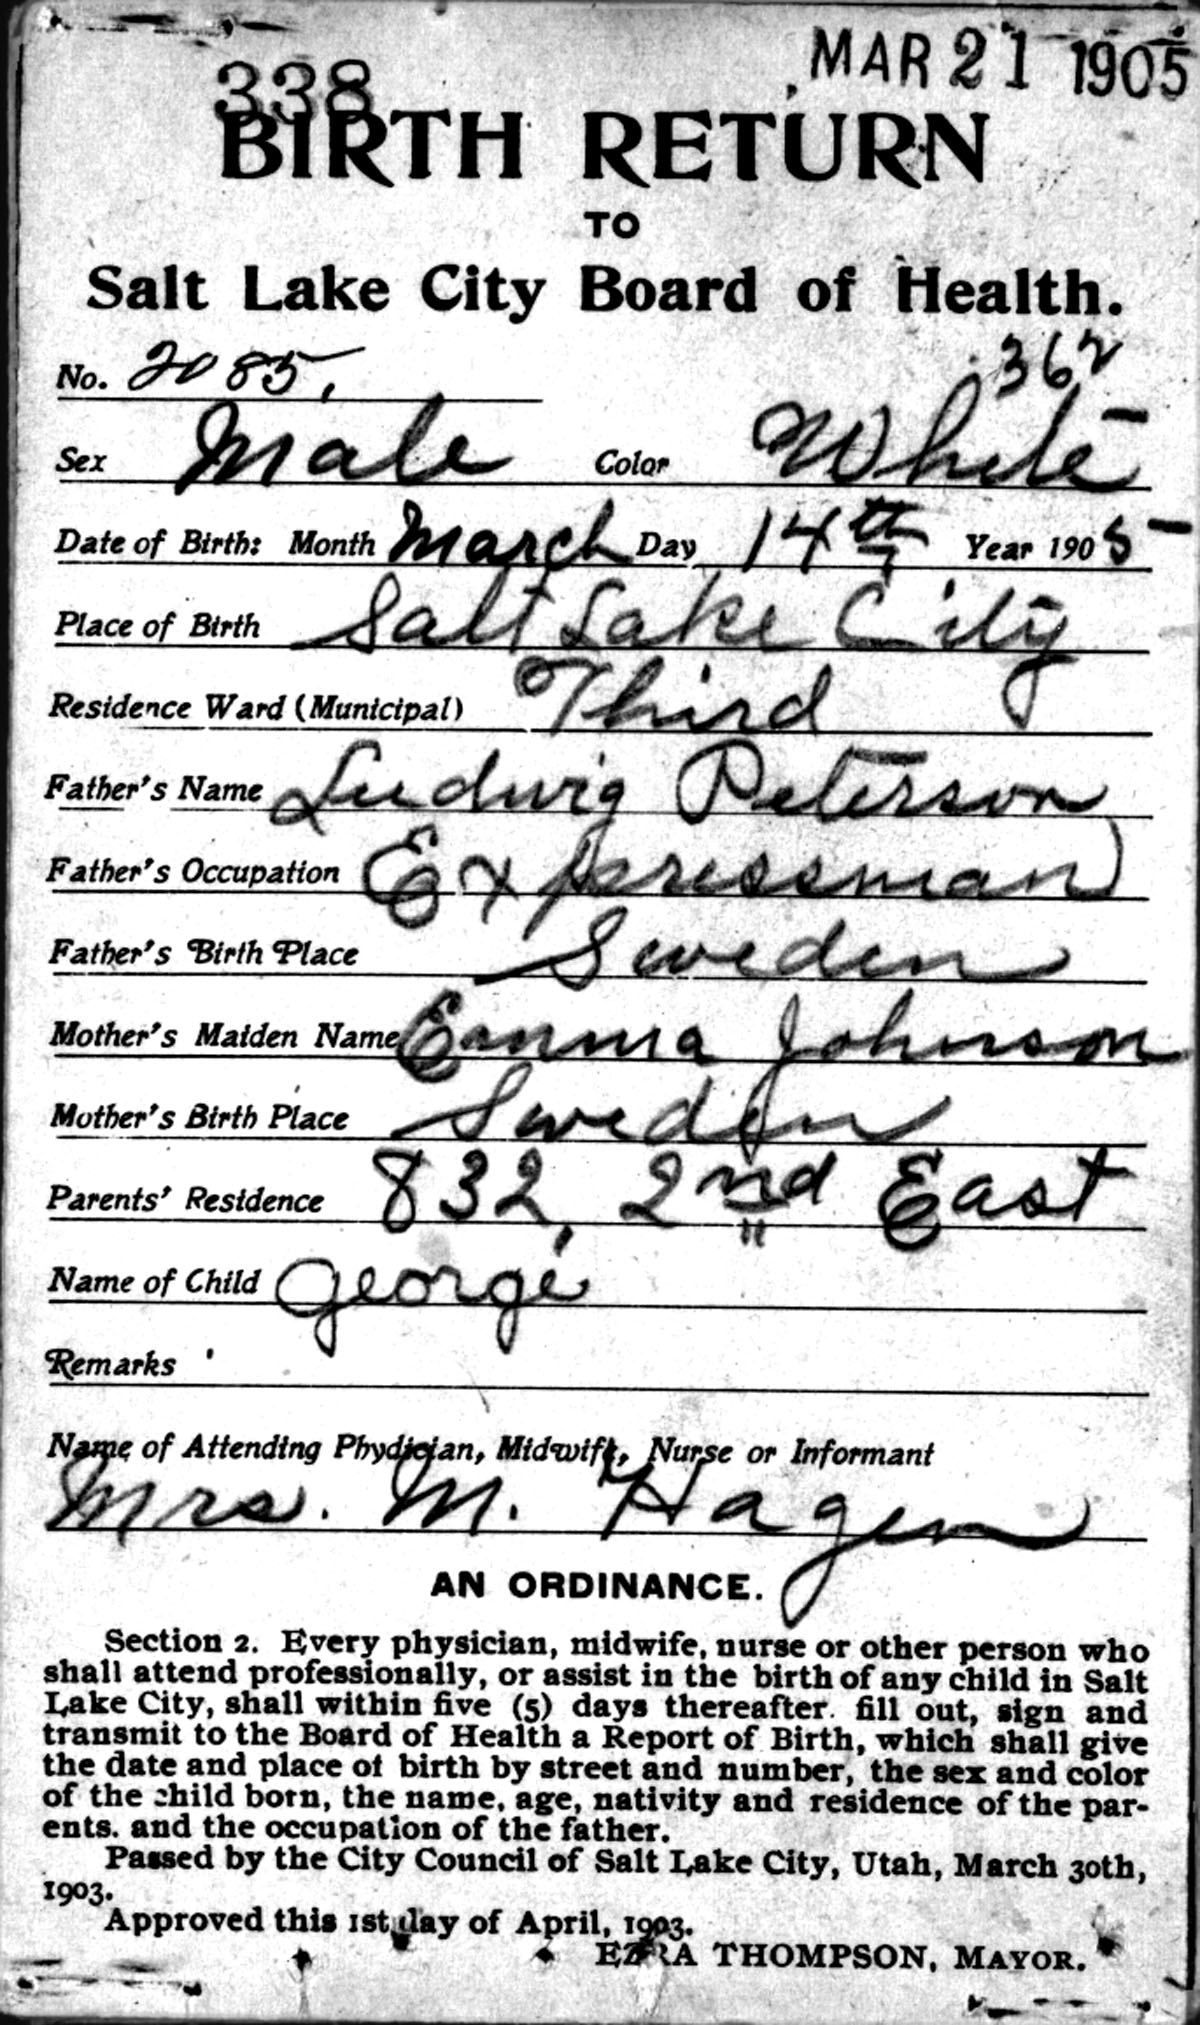 MAR 21 1905
338
BIRTH RETURN
TO
Salt Lake City Board of Health.
362
No. 2085,
Sex Male Color White
Date of Birth: Month March Day 14th Year 1905
Place of Birth Salt Lake City
Residence Ward (Municipal) Third
Father's Name Ludwig Peterson
Father's Occupation Expressman
Father's Birth Place Sweden
Mother's Maiden Name Emma Johnson
Mother's Birth Place Sweden
Parents' Residence 832, 2nd East
Name of Child George
Remarks
Name of Attending Phydician, Midwife, Nurse or Informant
Mrs. M. Hagen
AN ORDINANCE.
Section 2. Every physician, midwife, nurse or other person who
shall attend professionally, or assist in the birth of any child in Salt
Lake City, shall within five (5) days thereafter. fill out, sign and
transmit to the Board of Health a Report of Birth, which shall give
the date and place of birth by street and number, the sex and color
of the child born, the name, age, nativity and residence of the par-
ents. and the occupation of the father.
Passed by the City Council of Salt Lake City, Utah, March 30th,
1903.
Approved this 1st day of April, 1903.
EZRA THOMPSON, MAYOR.